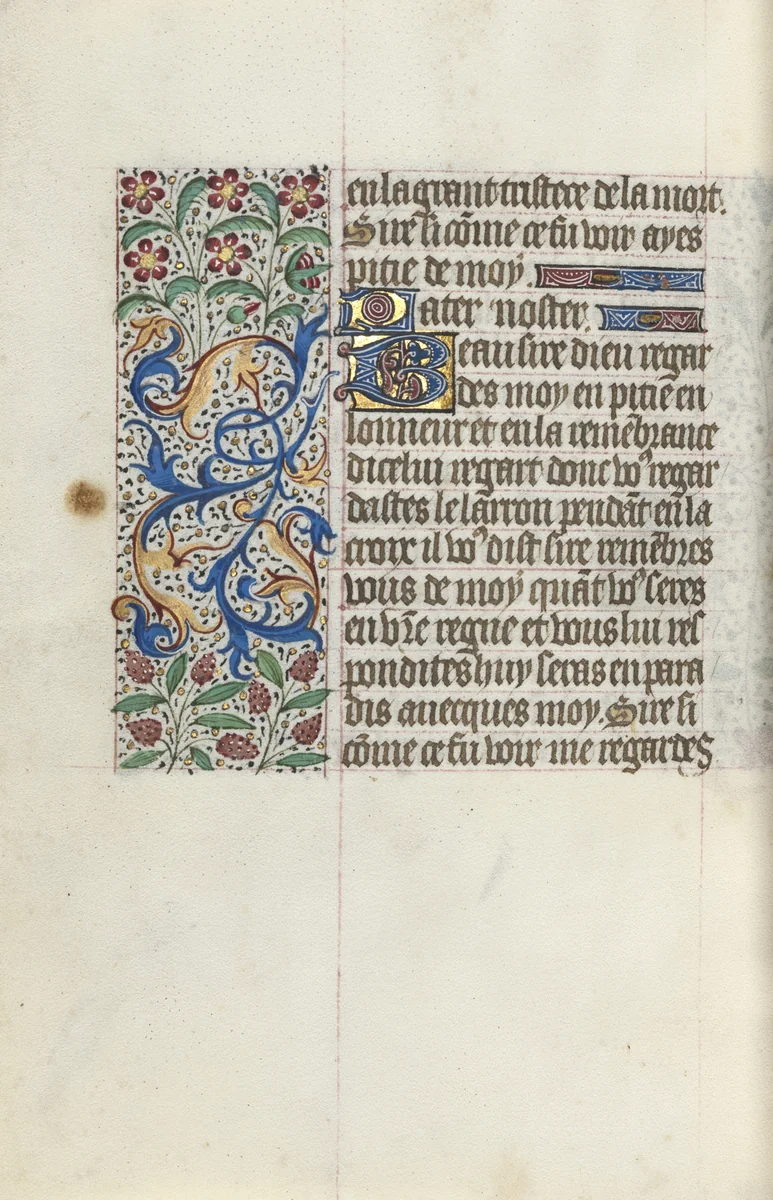 en la grant tristece de la mort.
Sire si cõme ce fu voir ayes
pitie de moy.
Pater noster.
Beau sire dieu regar
des moy en pitie en
lonneur et en la remẽbrance
dicelui regart donc voꝰ regar
dastes le larron pendãt en la
croix il voꝰ dist sire remẽbres
vous de moy quãt voꝰ seres
en vr̃e regne et vous lui res
pondites huy seras en para
dis avecques moy. Sire si
cõme ce fu voir me regardes